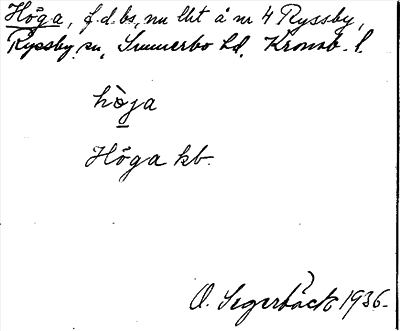 Höga, f.d. bs, nu lht å nr 4 Ryssby,
Ryssby sn, Sunnerbo hd, Kronob. l.
hòja
Höga kb.
O. Segerbäck 1936.